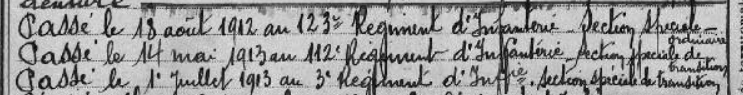 Passé le 18 août 1912 au 123e Régiment d'Infanterie Section Spéciale
Passé le 14 mai 1913 au 112e Régiment d'Infanterie section spéciale de transition ordinaire
Passé le 1er Juillet 1913 au 3e Régiment d'Inf.rie section spéciale de transition